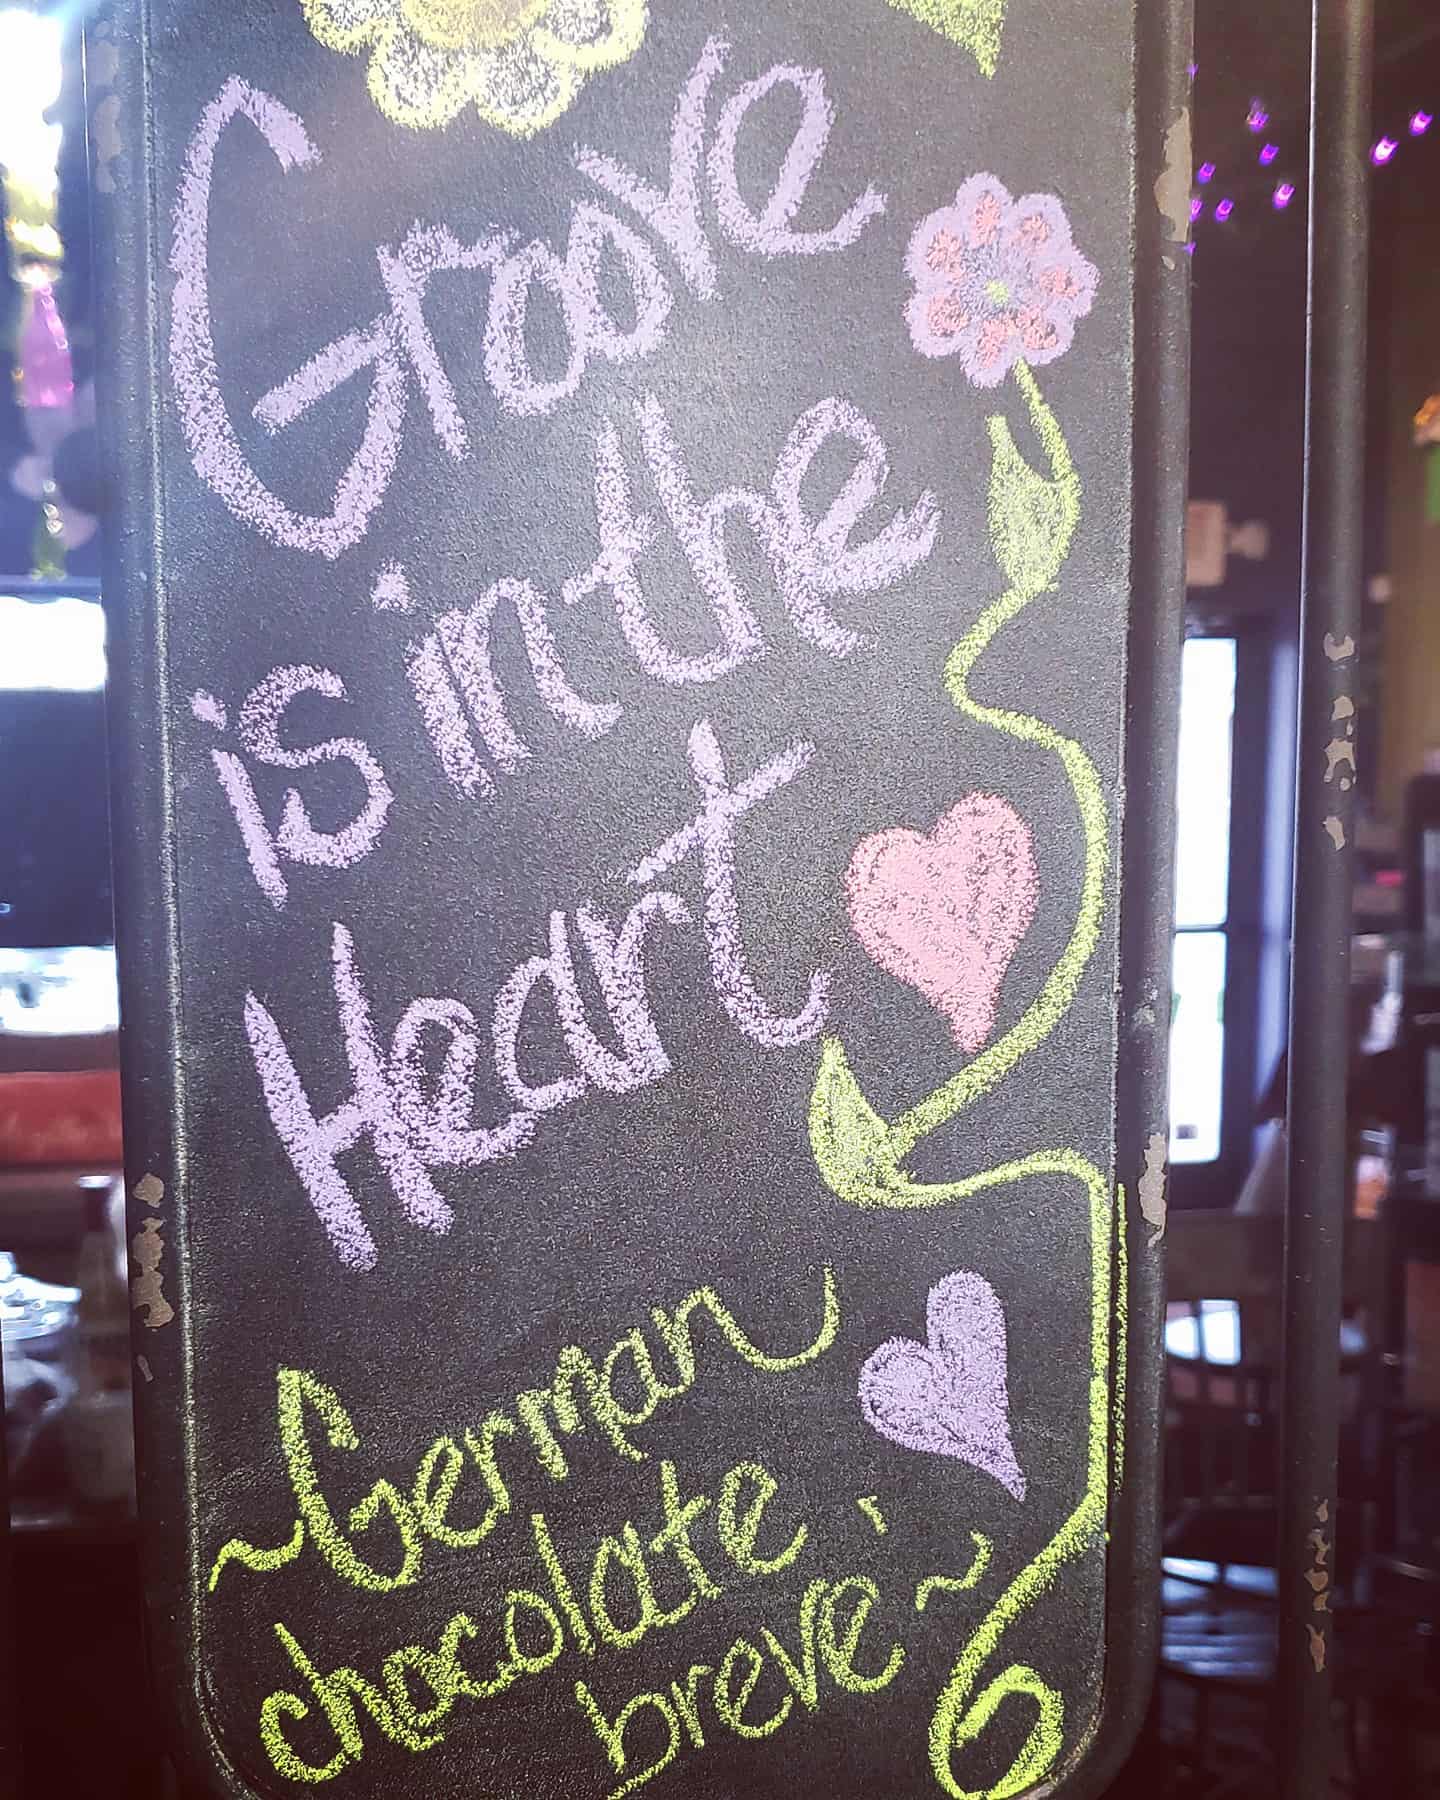 Groove
is in the
Heart
~German
chocolate
brevé~